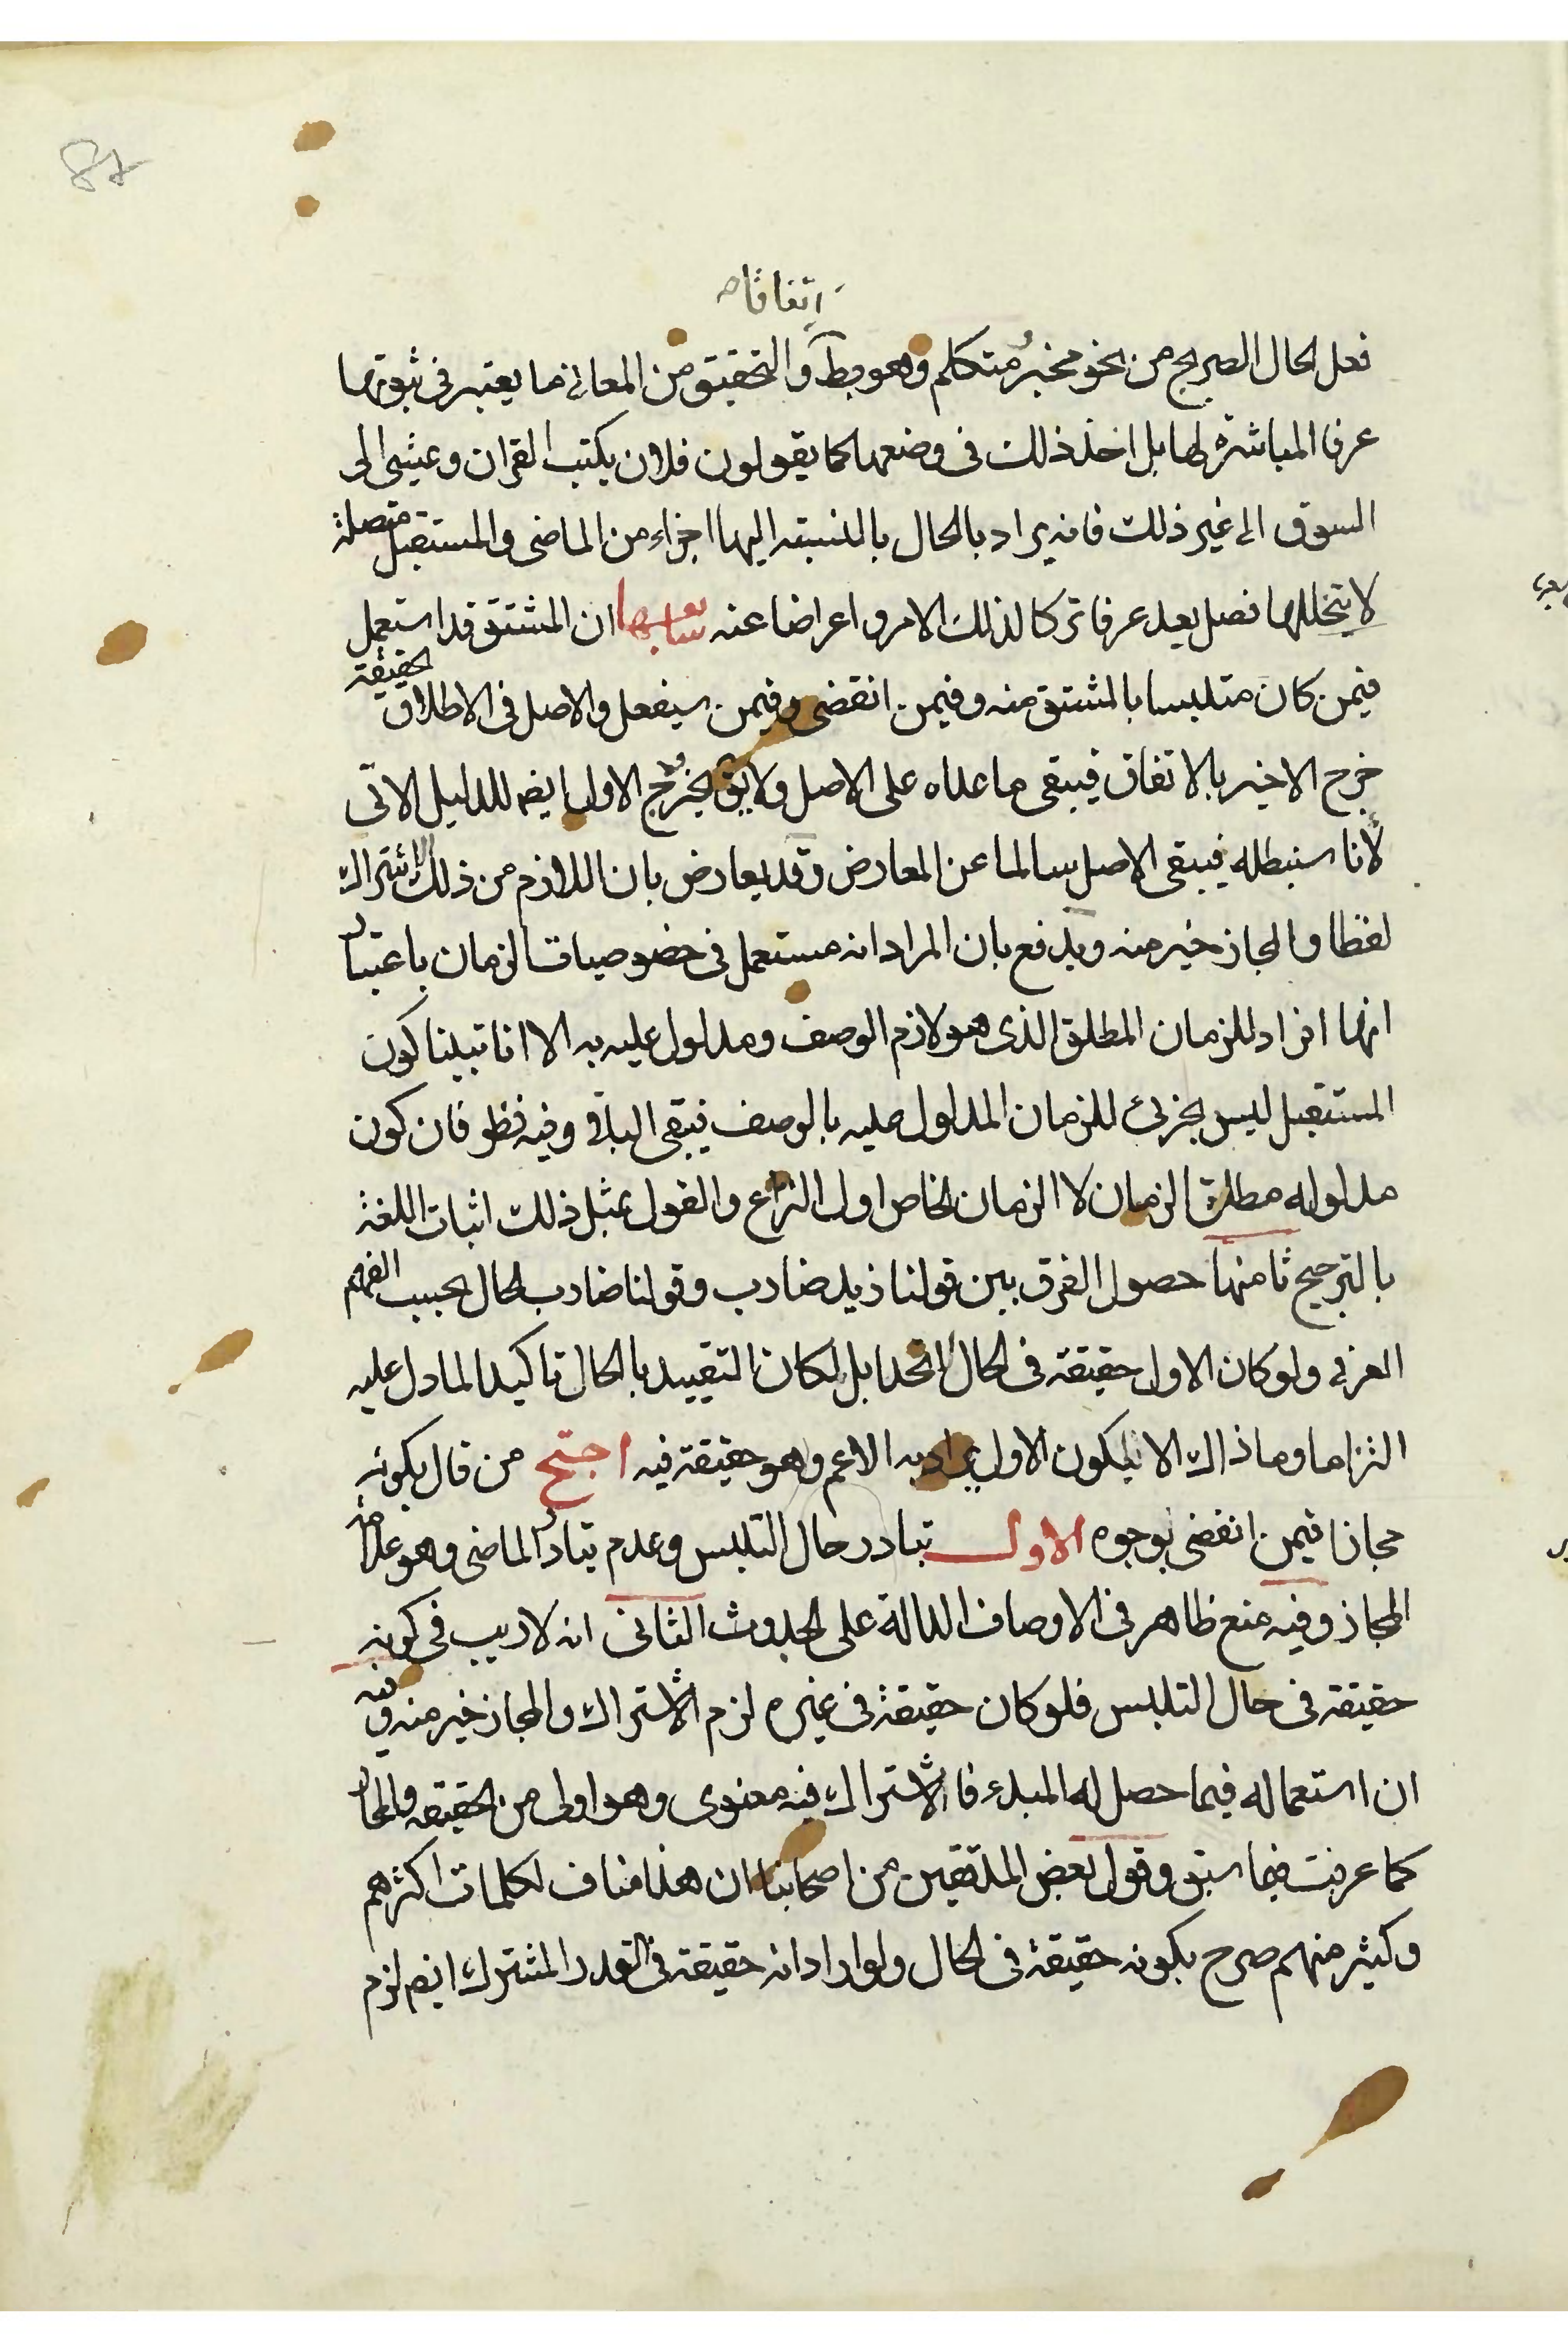 87
اتفاقا صح
فعل الحال الصريح من نحو مخبر ومتكلم وهو بط والتحقيق من المعاني ما يعتبر في ثبوتها
عرفا المباشرة لها بل اخذ ذلك في وضعها كما يقولون فلان يكتب القران ويمشى الى
السوق الى غير ذلك فانه يراد بالحال بالنسبة اليها اجزاء من الماضى والمستقبل متصلة
لا يتخللها فصل يعد عرفا تركا لذلك الامر و اعراضا عنه سابعها ان المشتق قد استعمل
فيمن كان متلبسا بالمشتق منه وفيمن انقضى وفيمن سيفعل والاصل في الاطلاق الحقيقة
خرج الاخير بالاتفاق فيبقى ما عداه على الاصل ولا يق بخروج الاول ايضا للدليل الاتى
لأنا سنبطله فيبقى الاصل سالما عن المعارض وقد يعارض بان اللازم من ذلك الاشتراك
لفظا والمجاز خير منه ويدفع بان المراد انه مستعمل فى خصوصيات الزمان باعتبار
انها افراد للزمان المطلق الذى هو لازم الوصف ومدلول عليه به الا انا تبينا كون
المستقبل ليس بجزئى للزمان المدلول عليه بالوصف فيبقى الباقى وفيه نظر فان كون
مدلوله مطلق الزمان لا الزمان الخاص اول النزاع والقول بمثل ذلك اثبات اللغة
بالترجيح ثامنها حصول الفرق بين قولنا زيد ضارب وقولنا ضارب الحال بحسب الفهم
العرفى ولو كان الاول حقيقة فى الحال لاتحدا بل لكان التقييد بالحال تاكيدا لما دل عليه
التزاما وما ذاك الا ليكون الاول يراد به الاعم وهو حقيقة فيه احتج من قال بكونه
مجازا فيمن انقضى بوجوه الاول تبادر حال التلبس وعدم تبادر الماضى وهو علامة
المجاز وفيه منع ظاهر فى الاوصاف الدالة على الحدوث الثانى انه لا ريب فى كونه
حقيقة فى حال التلبس فلو كان حقيقة فى غيره لزم الاشتراك والمجاز خير منه وفيه
ان استعماله فيما حصل له المبدء فالاشتراك فيه معنوى وهو اولى من الحقيقة والمجاز
كما عرفت فيما سبق وقول بعض المدققين من اصحابنا ان هذا مناف لكلمات اكثرهم
وكثير منهم صرح بكونه حقيقة فى الحال ولو اراد انه حقيقة فى القدر المشترك ايضا لزم